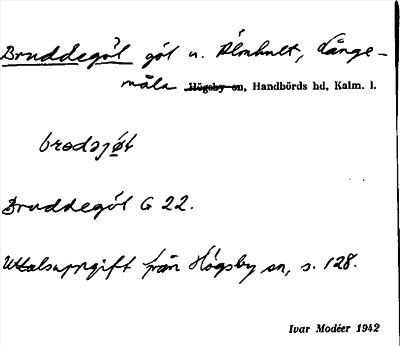 Bruddegöl göl n. Älmhult, Långe-
måla Högsby sn, Handbörds hd, Kalm. l.
Bruddegöl G 22.
Uttalsuppgift från Högsby sn, s. 128.
Ivar Modéer 1942